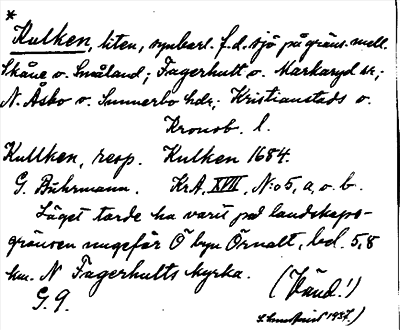 *
Kulken, liten, synbarl. f.d. sjö på gräns. mell.
Skåne o. Småland; Fagerhult o. Markaryd sr;
N. Åsbo o. Sunnerbo hdr; Kristianstads o.
Kronob. l.
Kullken, resp. Kulken 1684.
G. Buhrmann. KrA, XVII, N:o 5, a, o. b.
Läget torde ha varit på landskaps-
gränsen ungefär Ö byn Örnalt, bel. 5,8
km. N Fagerhults kyrka.
G. 9. (Vänd!)
1937.)